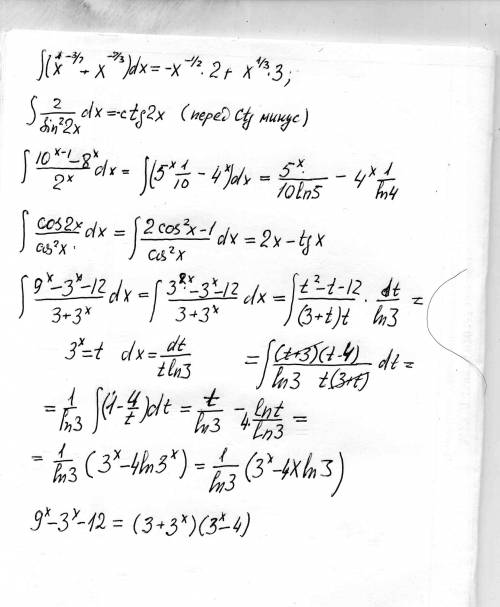 ∫(x^{-3/2} + x^{-2/3})dx = -x^{-1/2}·2 + x^{1/3}·3;
∫ 2/sin²2x dx = -ctg2x (перед Ctg минус)
∫ (10^{x-1} - 8^x)/2^x dx = ∫(5^x 1/10 - 4^x)dx = 5^x/(10ln5) - 4^x·1/ln4
∫ cos2x/cos²x dx = ∫ (2cos²x-1)/cos²x dx = 2x - tgx
∫ (9^x - 3^x - 12)/(3+3^x) dx = ∫ (3^{2x} - 3^x - 12)/(3+3^x) dx = ∫ (t²-t-12)/((3+t)t) · dt/ln3 =
3^x = t dx = dt/(t ln3) = ∫ (t+3)(t-4)/(ln3 t(3+t)) dt =
= 1/ln3 ∫(1 - 4/t)dt = t/ln3 - 4·lnt/ln3 =
= 1/ln3 (3^x - 4ln3^x) = 1/ln3 (3^x - 4xln3)
9^x - 3^x - 12 = (3+3^x)(3^x - 4)